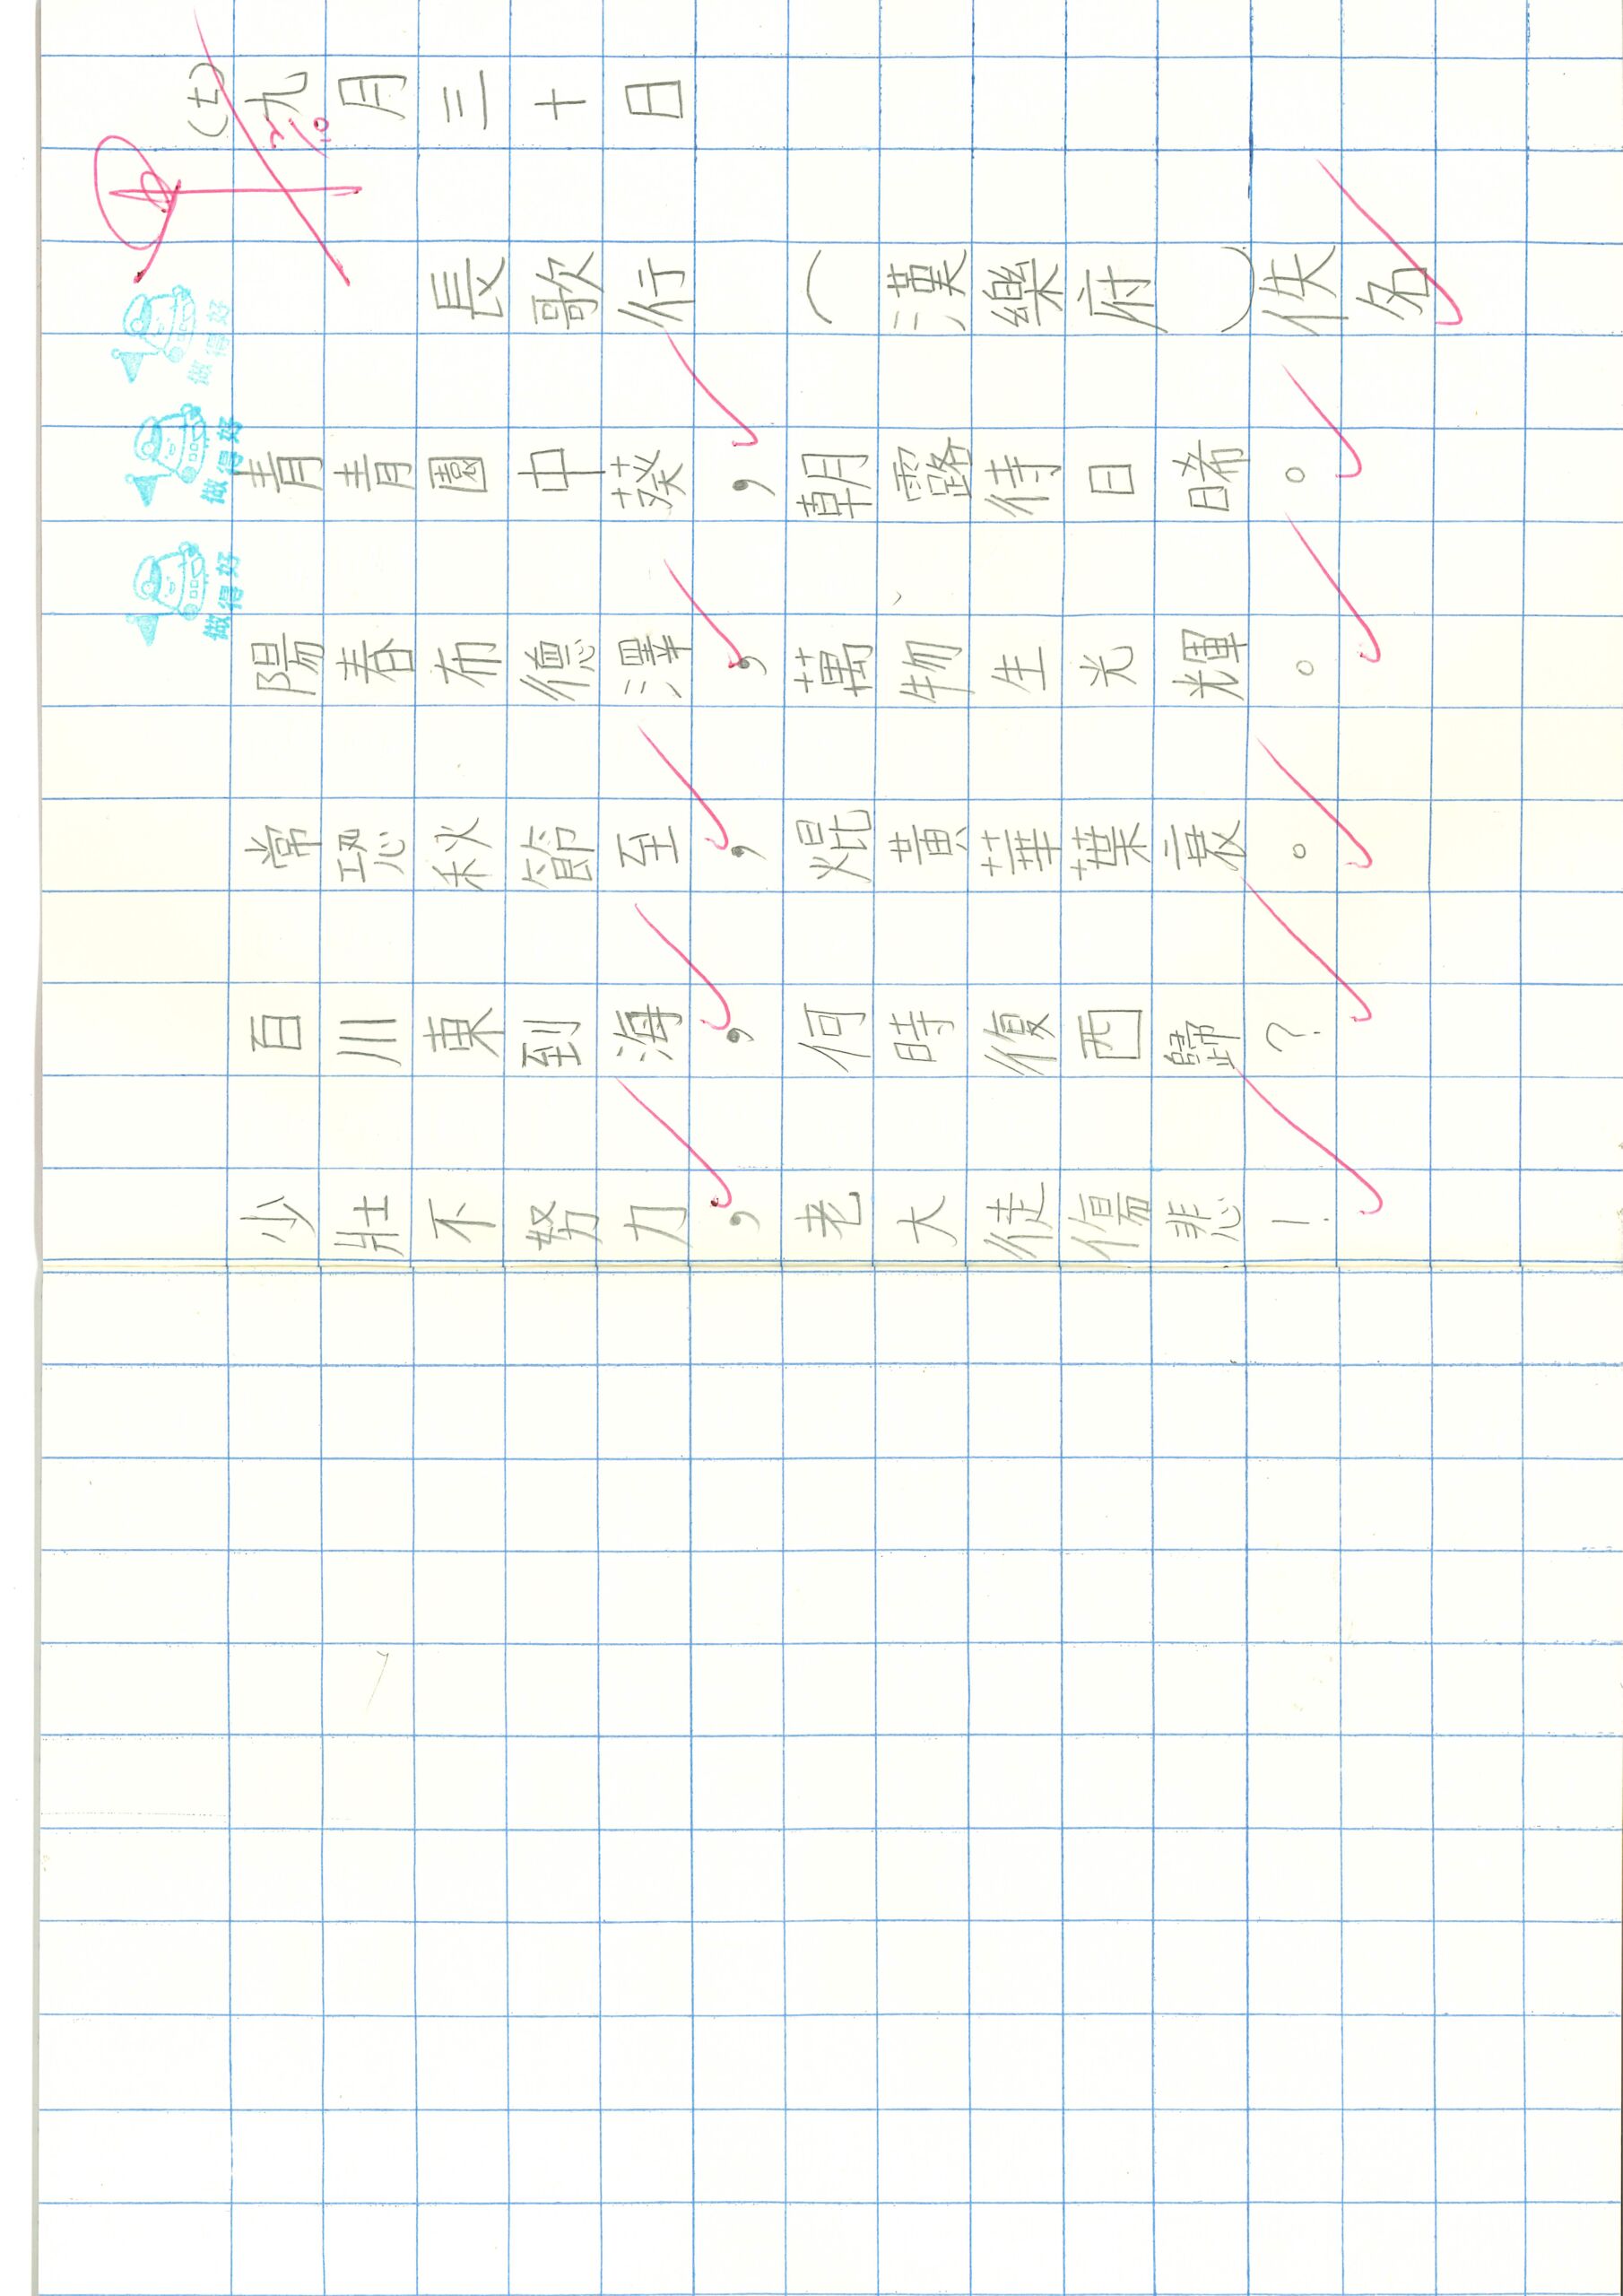 (七)九月三十日
10/2
長歌行(漢樂府)佚名
做得好
做得好
做得好
青青園中葵,朝露待日晞。
陽春布德澤,萬物生光輝。
常恐秋節至,焜黃華葉衰。
百川東到海,何時復西歸?
少壯不努力,老大徒傷悲!